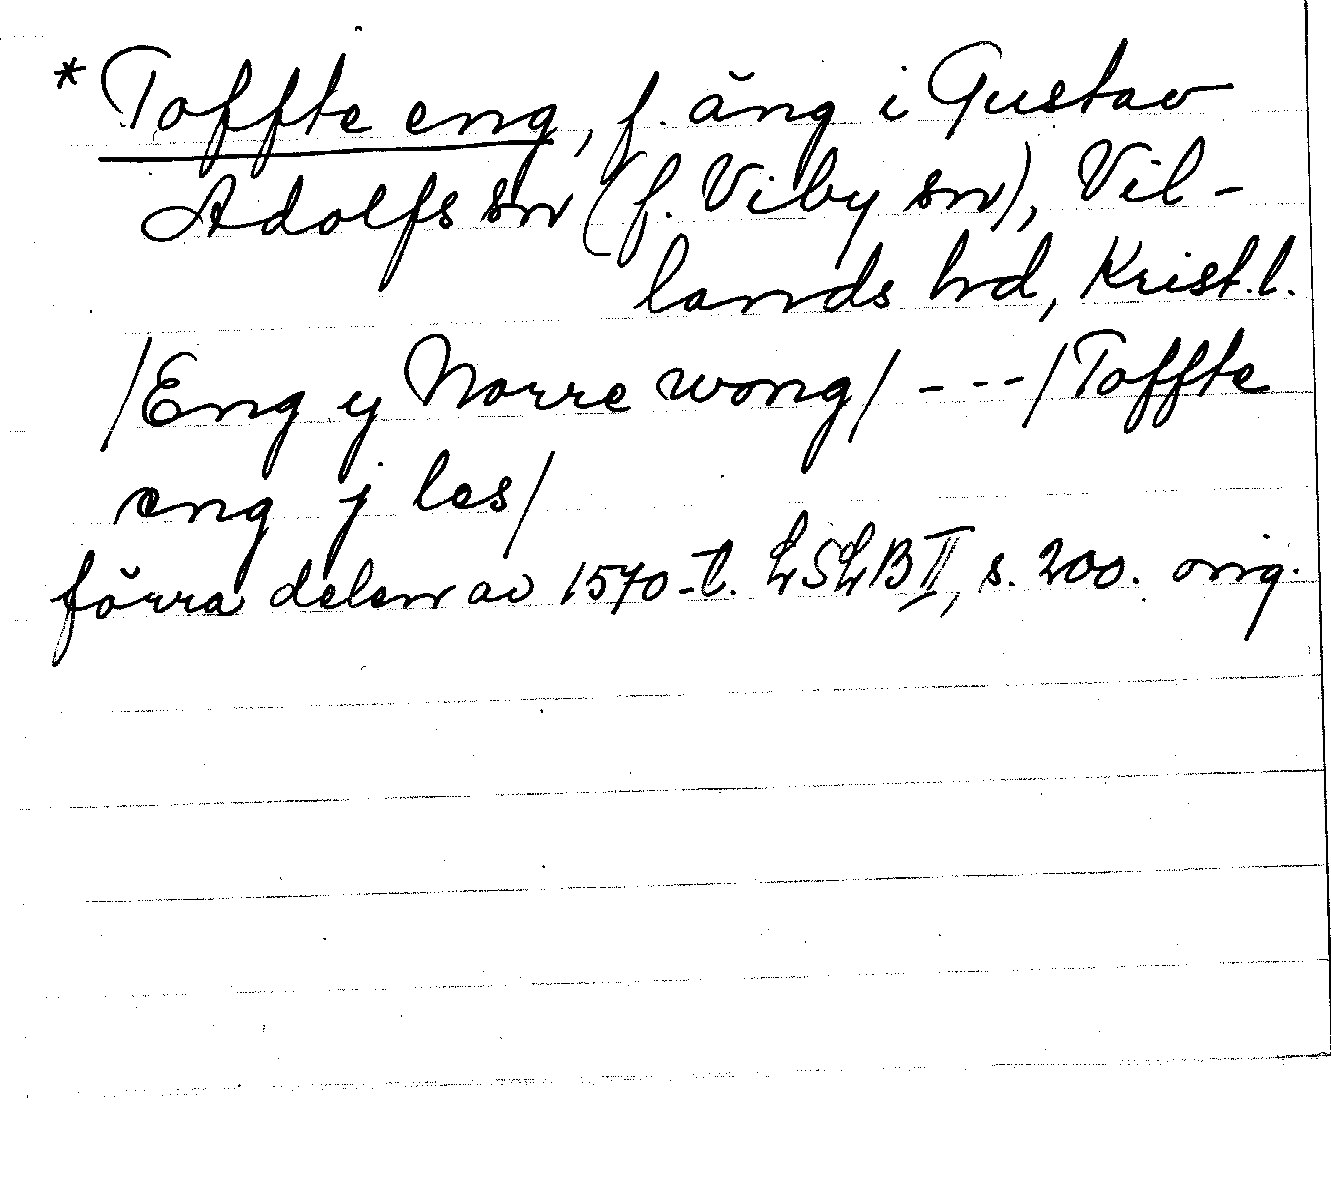 * Toffte eng, f. äng i Gustav
Adolfs sn (f. Viby sn), Vil-
lands hd, Krist.l.
/Eng y Norre wong/ - - - /Toffte
eng j les/
förra delen av 1570-t. LSLB II, s. 200. orig.